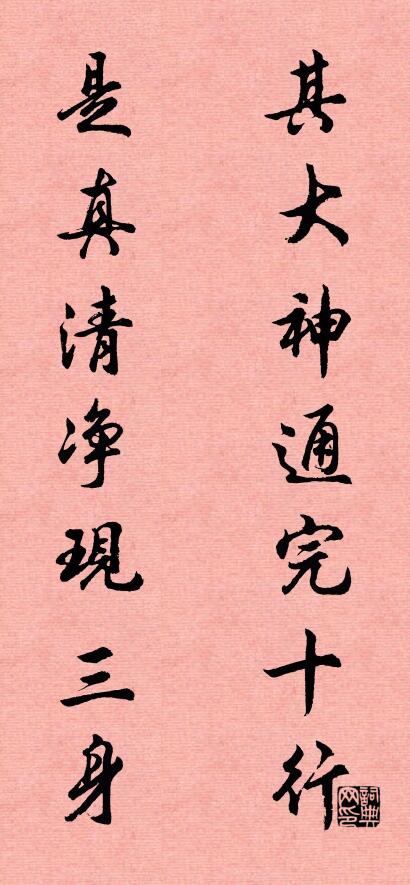 其大神通完十行
是真清净現三身
詞典网印